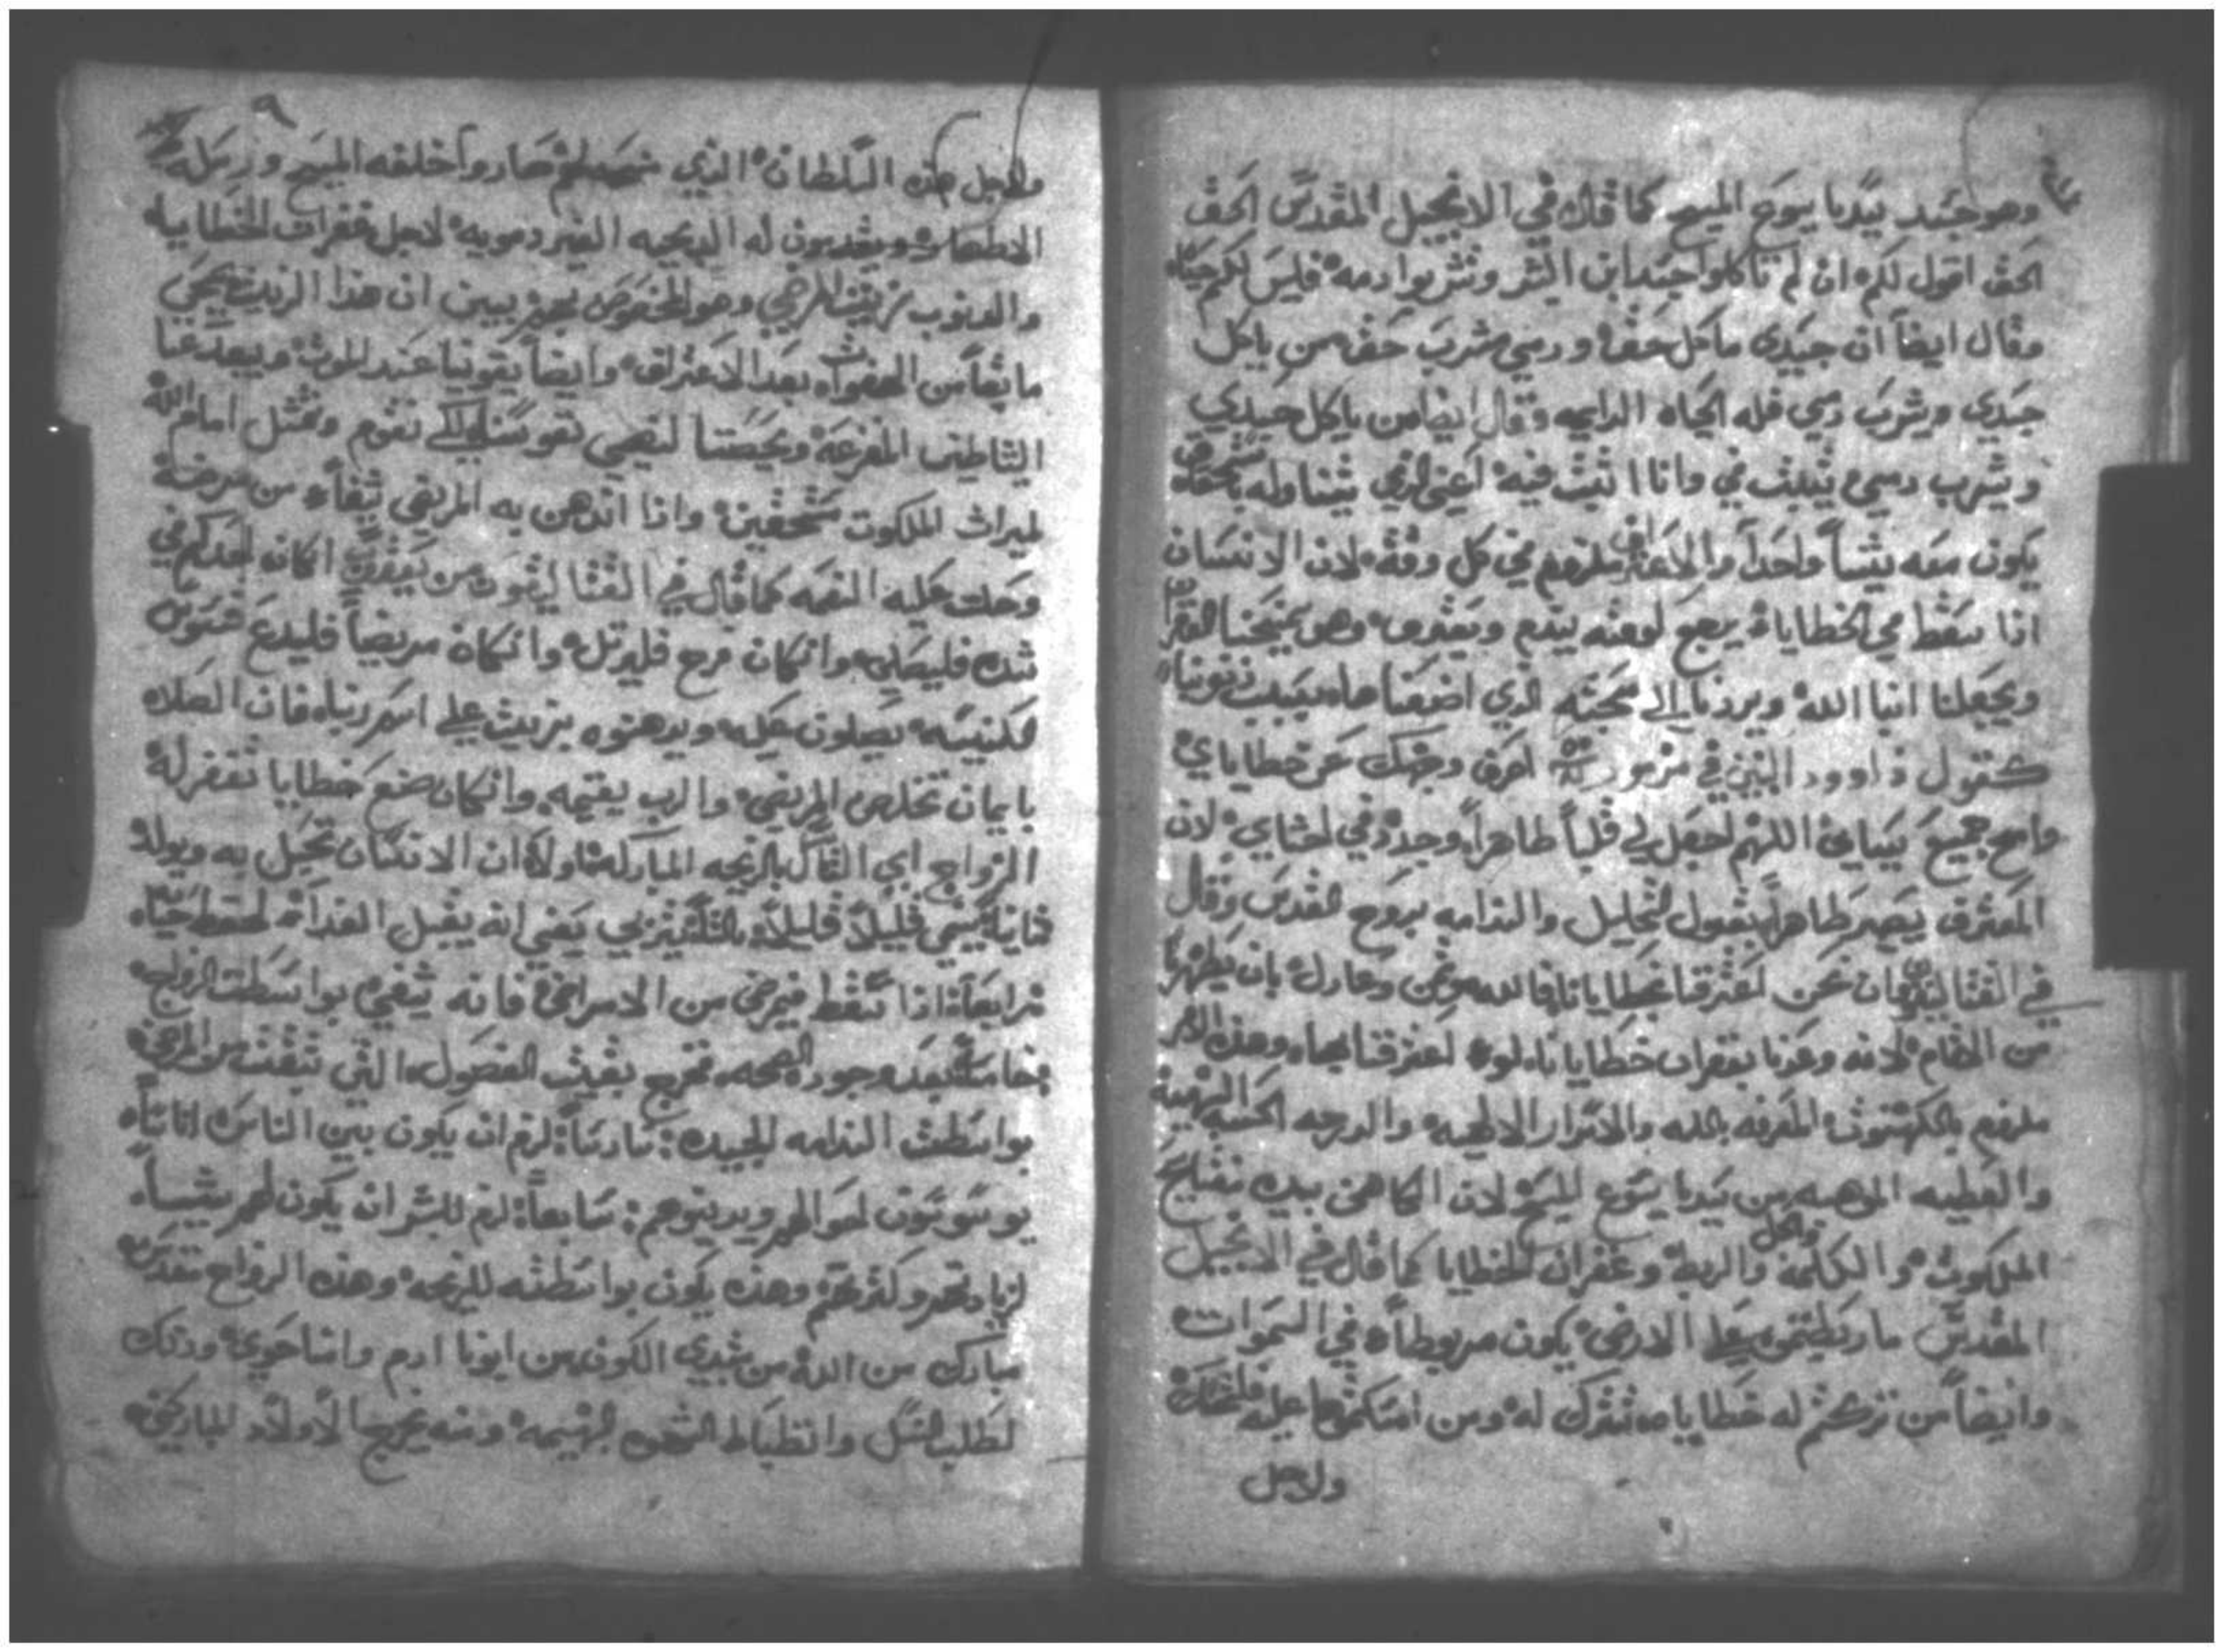 وهو جسد سيدنا يسوع المسيح كما قال في الانجيل المقدس الحق
الحق اقول لكم ان لم تاكلوا جسد ابن البشر وتشربوا دمه فليس لكم حياه
وقال ايضاً ان جسدي ماكل حق ودمي مشرب حق من ياكل
جسدي ويشرب دمي فله الحياه الدايمه وقال ايضا من ياكل جسدي
ويشرب دمي يثبت في وانا اثبت فيه اعني الذي يتناوله باستحقاق
يكون معه شيئاً واحداً والاعتراف ملزوم في كل وقت لان الانسان
اذا سقط في الخطايا يرجع لوعته يندم ويعترف وهو يمنحنا الغفران
ويجعلنا ابنا الله ويردنا الى محبته الذي اضعناها بسبب ذنوبنا
كقول داوود النبي في مزمور اصرف وجهك عن خطاياي
وامح جميع سياتي اللهم اجعل لي قلباً طاهراً وجدد في احشاي لان
المعترف يصير طاهراً بقبول التحليل والندامه بروح القدس وقال
في القثاليقون ان نحن اعترفنا بخطايانا فالله مومن وعادل بان يطهرنا
من الاثام لانه وعدنا بغفران خطايانا لو اعترفنا بها وهذا السر
ملزوم بالكهنوت المعرفه بالله والاسرار الالهيه والدرجه الحسنه البهيه
والعطيه الموهبه من سيدنا يسوع المسيح لان الكاهن بيده مفتاح
الملكوت والكلمة والربط والحل وغفران الخطايا كما قال في الانجيل
المقدس ما ربطتموه على الارض يكون مربوطاً في السموات
وايضاً من تركتم له خطاياه تترك له ومن امسكتموها عليه
ولاجل
٩
ولاجل هذه السلطان الذي صار واخلفه المسيح ورسله
الاطهار ويقدمون له الدبيحه الغير دمويه لاجل غفران الخطايا
والدنوب زيت المرضي وهو المخصوص يبين ان هذا الزيت يمحي
ما بقا من الهفوات بعد الاعتراف وايضاً يقوينا عند الموت ويبعد عنا
الشاطين المفزعة ويحصننا لكي نقوم ونمثل امام الله
لميراث الملكوت مستحقين واذا اندهن به المريض يشفا من مرضه
وحلت عليه النعمه كما قال في القثاليقون من يعقوب ان كان احدكم في
شده فليصلي وان كان فرح فليرتل وان كان مريضاً فليدع قسوس
الكنيسه يصلون عليه ويدهنوه بزيت على اسم ربنا فان الصلاه
بايمان تخلص المريض والرب يقيمه وان كان صنع خطايا تغفر له
الزواج اي التاكل بالزيجه المباركه اولا ان الانسان تحبل به ويولد
ثانيا ينمي قليلاً قليلاً يعني انه يقبل الغدا لحفظ حياته
رابعاً اذا سقط فيمرض من الامراض فانه يشفي بواسطت الزواج
خامساً بعد وجود الصحه فتخرج بقيت الفضول التي تبقت من المرض
بواسطت الندامه الجيده سادساً لزم ان يكون بين الناس اناساً
يوسوسون احوالهم ويدينوهم سابعاً لزم للبشر ان يكون لهم شيئاً
لزيادتهم وكثرتهم وهذه يكون بواسطته للزيجه وهذه الزواج تقدس
مبارك من الله من مبدي الكون من ابونا ادم وامنا حوي وذلك
لطلب النسل وانظباط الشهوه البهيمه ومنه يخرج الاولاد المباركين